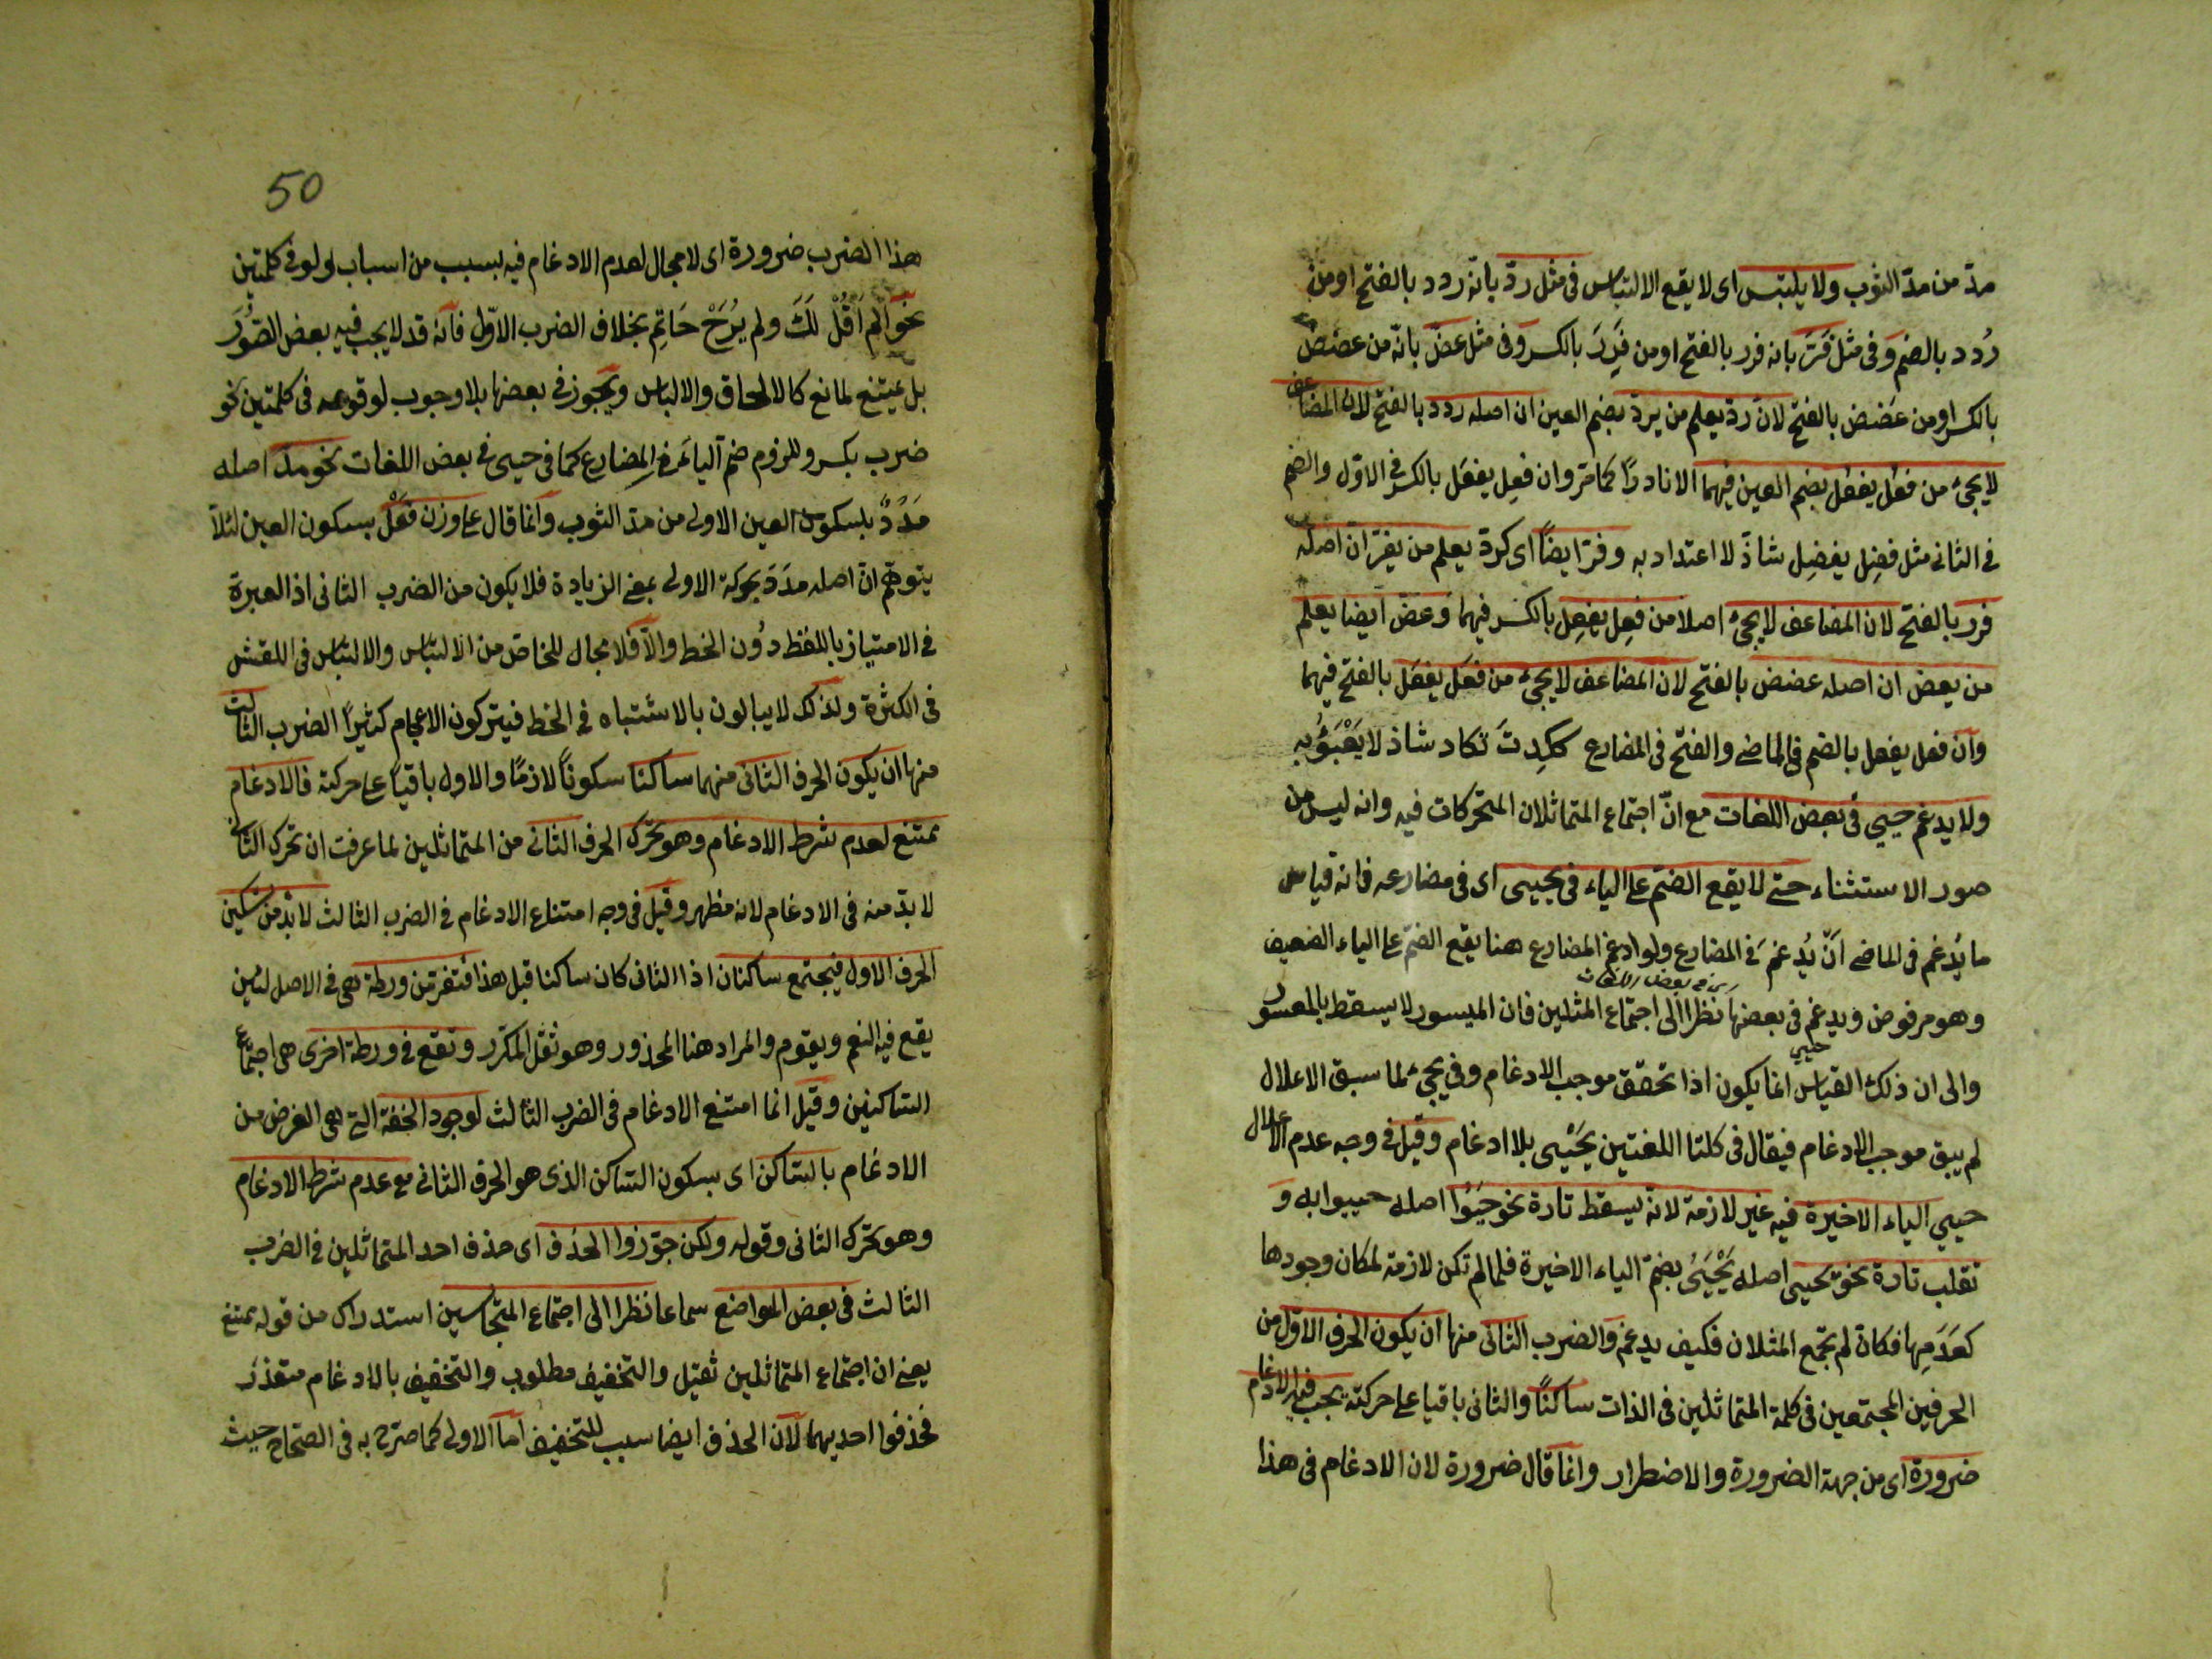 مدّ من مدّ الثوب ولا يلتبس اى لا يقع الالتباس فى مثل ردّ بانّه ردد بالفتح او من
رُدد بالضم وفى مثل فرّ بانه فرر بالفتح او من فرِر بالكسر وفى مثل عضّ بانّه من عضُض
بالكسر او من عَضض بالفتح لانّ ردّ يعلم من يردّ بضم العين ان اصله ردد بالفتح لان المضاعف
لا يجئ من فعُل يفعُل بضم العين فيهما الا نادرًا كما مرّ وان فعِل يفعَل بالكسر فى الاوّل والضم
فى الثانى مثل فضِل يفضِل شاذّ لا اعتداد به وفرّ ايضًا اى كردّ يعلم من يفرّ ان اصله
فرر بالفتح لان المضاعف لا يجئ اصلا من فعِل يفعِل بالكسر فيهما وعضّ ايضا يعلم
من يعض ان اصله عضض بالفتح لان المضاعف لا يجئ من فعَل يفعَل بالفتح فيهما
وان فعل يفعل بالضم فى الماضى والفتح فى المضارع ككِدتَ تكاد شاذ لا يَعْبَؤُ به
ولا يدغم حيي فى بعض اللغات مع انّ اجتماع المتماثلان المتحركات فيه وانه ليس من
صور الاستثناء حتى لا يقع الضم على الياء فى يحيى اى فى مضارعه فانه قياس
ما يُدغم فى الماضى اَنّ يُدغمَ فى المضارع ولو ادغم المضارع هنا يقع الضمّ على الياء الضعيف
وهو مرفوض ويدغم فى بعضها اى فى بعض اللغات نظرا الى اجتماع المثلين فان الميسور لا يسقط بالمعسور
والى ان ذلك القياس انما يكون اذا تحقق موجب الادغام وفى يحيى لما سبق الاعلال
لم يبق موجب الادغام فيقال فى كلتا اللغتين يَحْيى بلا ادغام وقيل فى وجه عدم اعلال
حيي الياء الاخيرة فيه غير لازمة لانّه يسقط تارة نحو حَيُوْا اصله حييوا به و
تقلب تارة نحو يحيى اصله يَحْيَيُ بضمّ الياء الاخيرة فلما لم تكن لازمة لمكان وجودها
كعَدَمِها فكانّه لم تجمع المثلان فكيف يدغم والضرب الثانى منها ان يكون الحرف الاوّل من
الحرفين المجتمعين فى كلمة المتماثلين فى الذات ساكنًا والثانى باقيا على حركته يجب فيه الادغام
ضرورة اى من جهة الضرورة والاضطرار وانما قال ضرورة لان الادغام فى هذا
50
هذا الضرب ضرورة اى لا مجال لعدم الادغام فيه بسبب من اسباب ولو فى كلمتين
نحو الَم اَقُلْ لَكَ ولم يَرُحْ حَاتِم بخلاف الضرب الاوّل فانّه قد لا يجب فيه بعض الصُّوَر
بل يمتنع لمانع كالالحاق والالباس ويجوز فى بعضها بلا وجوب لوقوعه فى كلمتين نحو
ضرب بكر وللزوم ضم الياء فى المضارع كما فى حيى فى بعض اللغات نحو مدّ اصله
مَدْدٌ بسكون العين الاولى من مدّ الثوب وانّما قال على وزن فَعْلٌ بسكون العين لئلّا
يتوهّم انّ اصله مدَدَ بحركة الاولى بمعنى الزيادة فلا يكون من الضرب الثانى اذ العبرة
فى الامتياز باللفظ دُون الخط والّا فلا مجال للخاصّ من الالتباس والالتباس فى النقش
فى الكثرة ولذلك لا يبالون بالاشتباه فى الخط فيتركون الاعجام كثيرًا الضرب الثالث
منها ان يكون الحرف الثانى منهما ساكنا سكونًا لازمًا والاول باقيا على حركته فالادغام
يمتنع لعدم شرط الادغام وهو تحرّك الحرف الثانى من المتماثلين لما عرفت ان تحرك الثانى
لا بدّ منه فى الادغام لانه مظهر وقيل فى وجه امتناع الادغام فى الضرب الثالث لا بدّ من تسكين
الحرف الاول فيجتمع ساكنان اذا الثانى كان ساكنا قبل هذا فتفرّ من ورطة هى فى الاصل لتين
يقع فيه الغنم ويقوم والمراد هنا المحذور وهو ثقل المكرّر وتقع فى ورطة اخرى هى اجتماع
الساكنين وقيل انما امتنع الادغام فى الضرب الثالث لوجود الخفّة التى هى الغرض من
الادغام بالساكن اى بسكون الساكن الذى هو الحرف الثانى مع عدم شرط الادغام
وهو تحرّك الثانى وقوله ولكن جوّزوا الحذف اى حذف احد المتماثلين فى الضرب
الثالث فى بعض المواضع سماعا نظرا الى اجتماع المتجانسين استدراك من قوله يمتنع
يعنى ان اجتماع المتماثلين ثقيل والتخفيف مطلوب والتخفيف بالادغام متعذر
فحذفوا احديهما لانّ الحذف ايضا سبب للتخفيف امّا الاولى كما صرّح به فى الصحّاح حيث